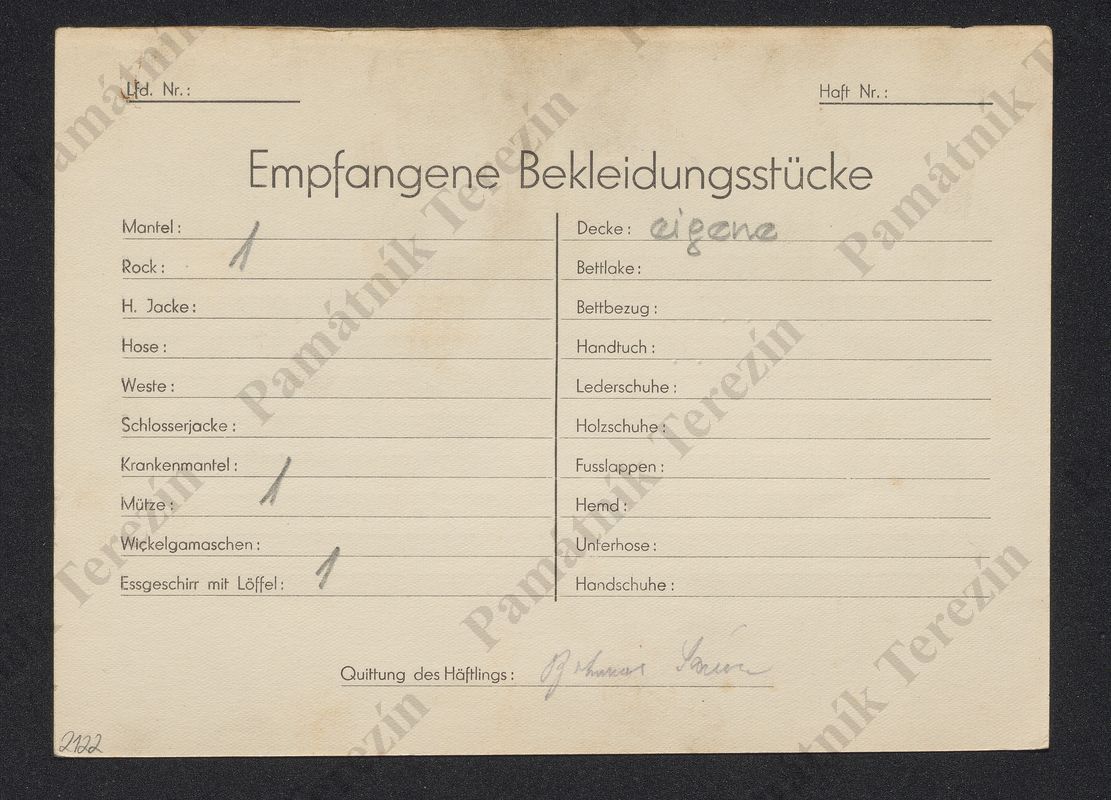 Lfd. Nr.:
Haft Nr.:
Empfangene Bekleidungsstücke
Mantel:
Rock: 1
H. Jacke:
Hose:
Weste:
Schlosserjacke:
Krankenmantel:
Mütze: 1
Wickelgamaschen:
Essgeschirr mit Löffel: 1
Decke: eigene
Bettlake:
Bettbezug:
Handtuch:
Lederschuhe:
Holzschuhe:
Fusslappen:
Hemd:
Unterhose:
Handschuhe:
Quittung des Häftlings:
2122
Památník Terezín